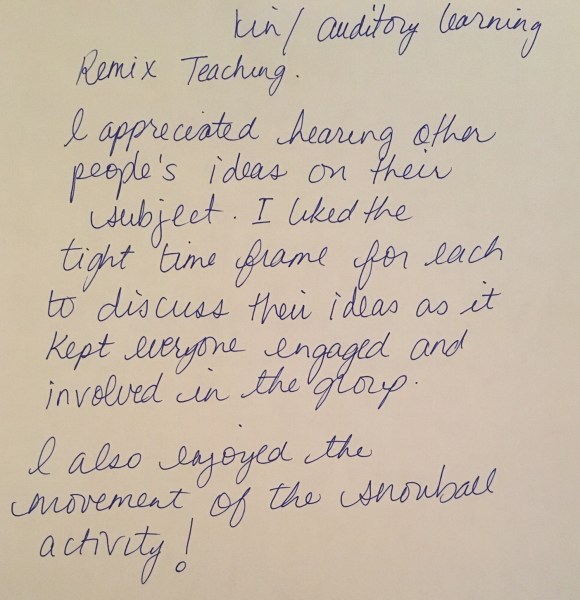 kin/ auditory learning
Remix Teaching.
I appreciated hearing other
people's ideas on their
subject. I liked the
tight time frame for each
to discuss their ideas as it
kept everyone engaged and
involved in the group.
I also enjoyed the
movement of the snowball
activity!